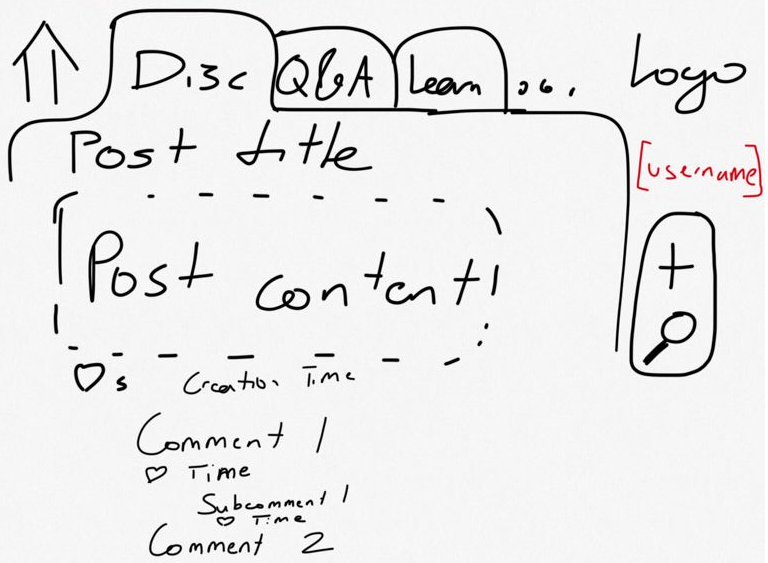 Disc Q&A Learn ... Logo
Post title
[username]
Post content
♡s Creation Time
+
Comment 1
♡ Time
Subcomment 1
♡ Time
Comment 2